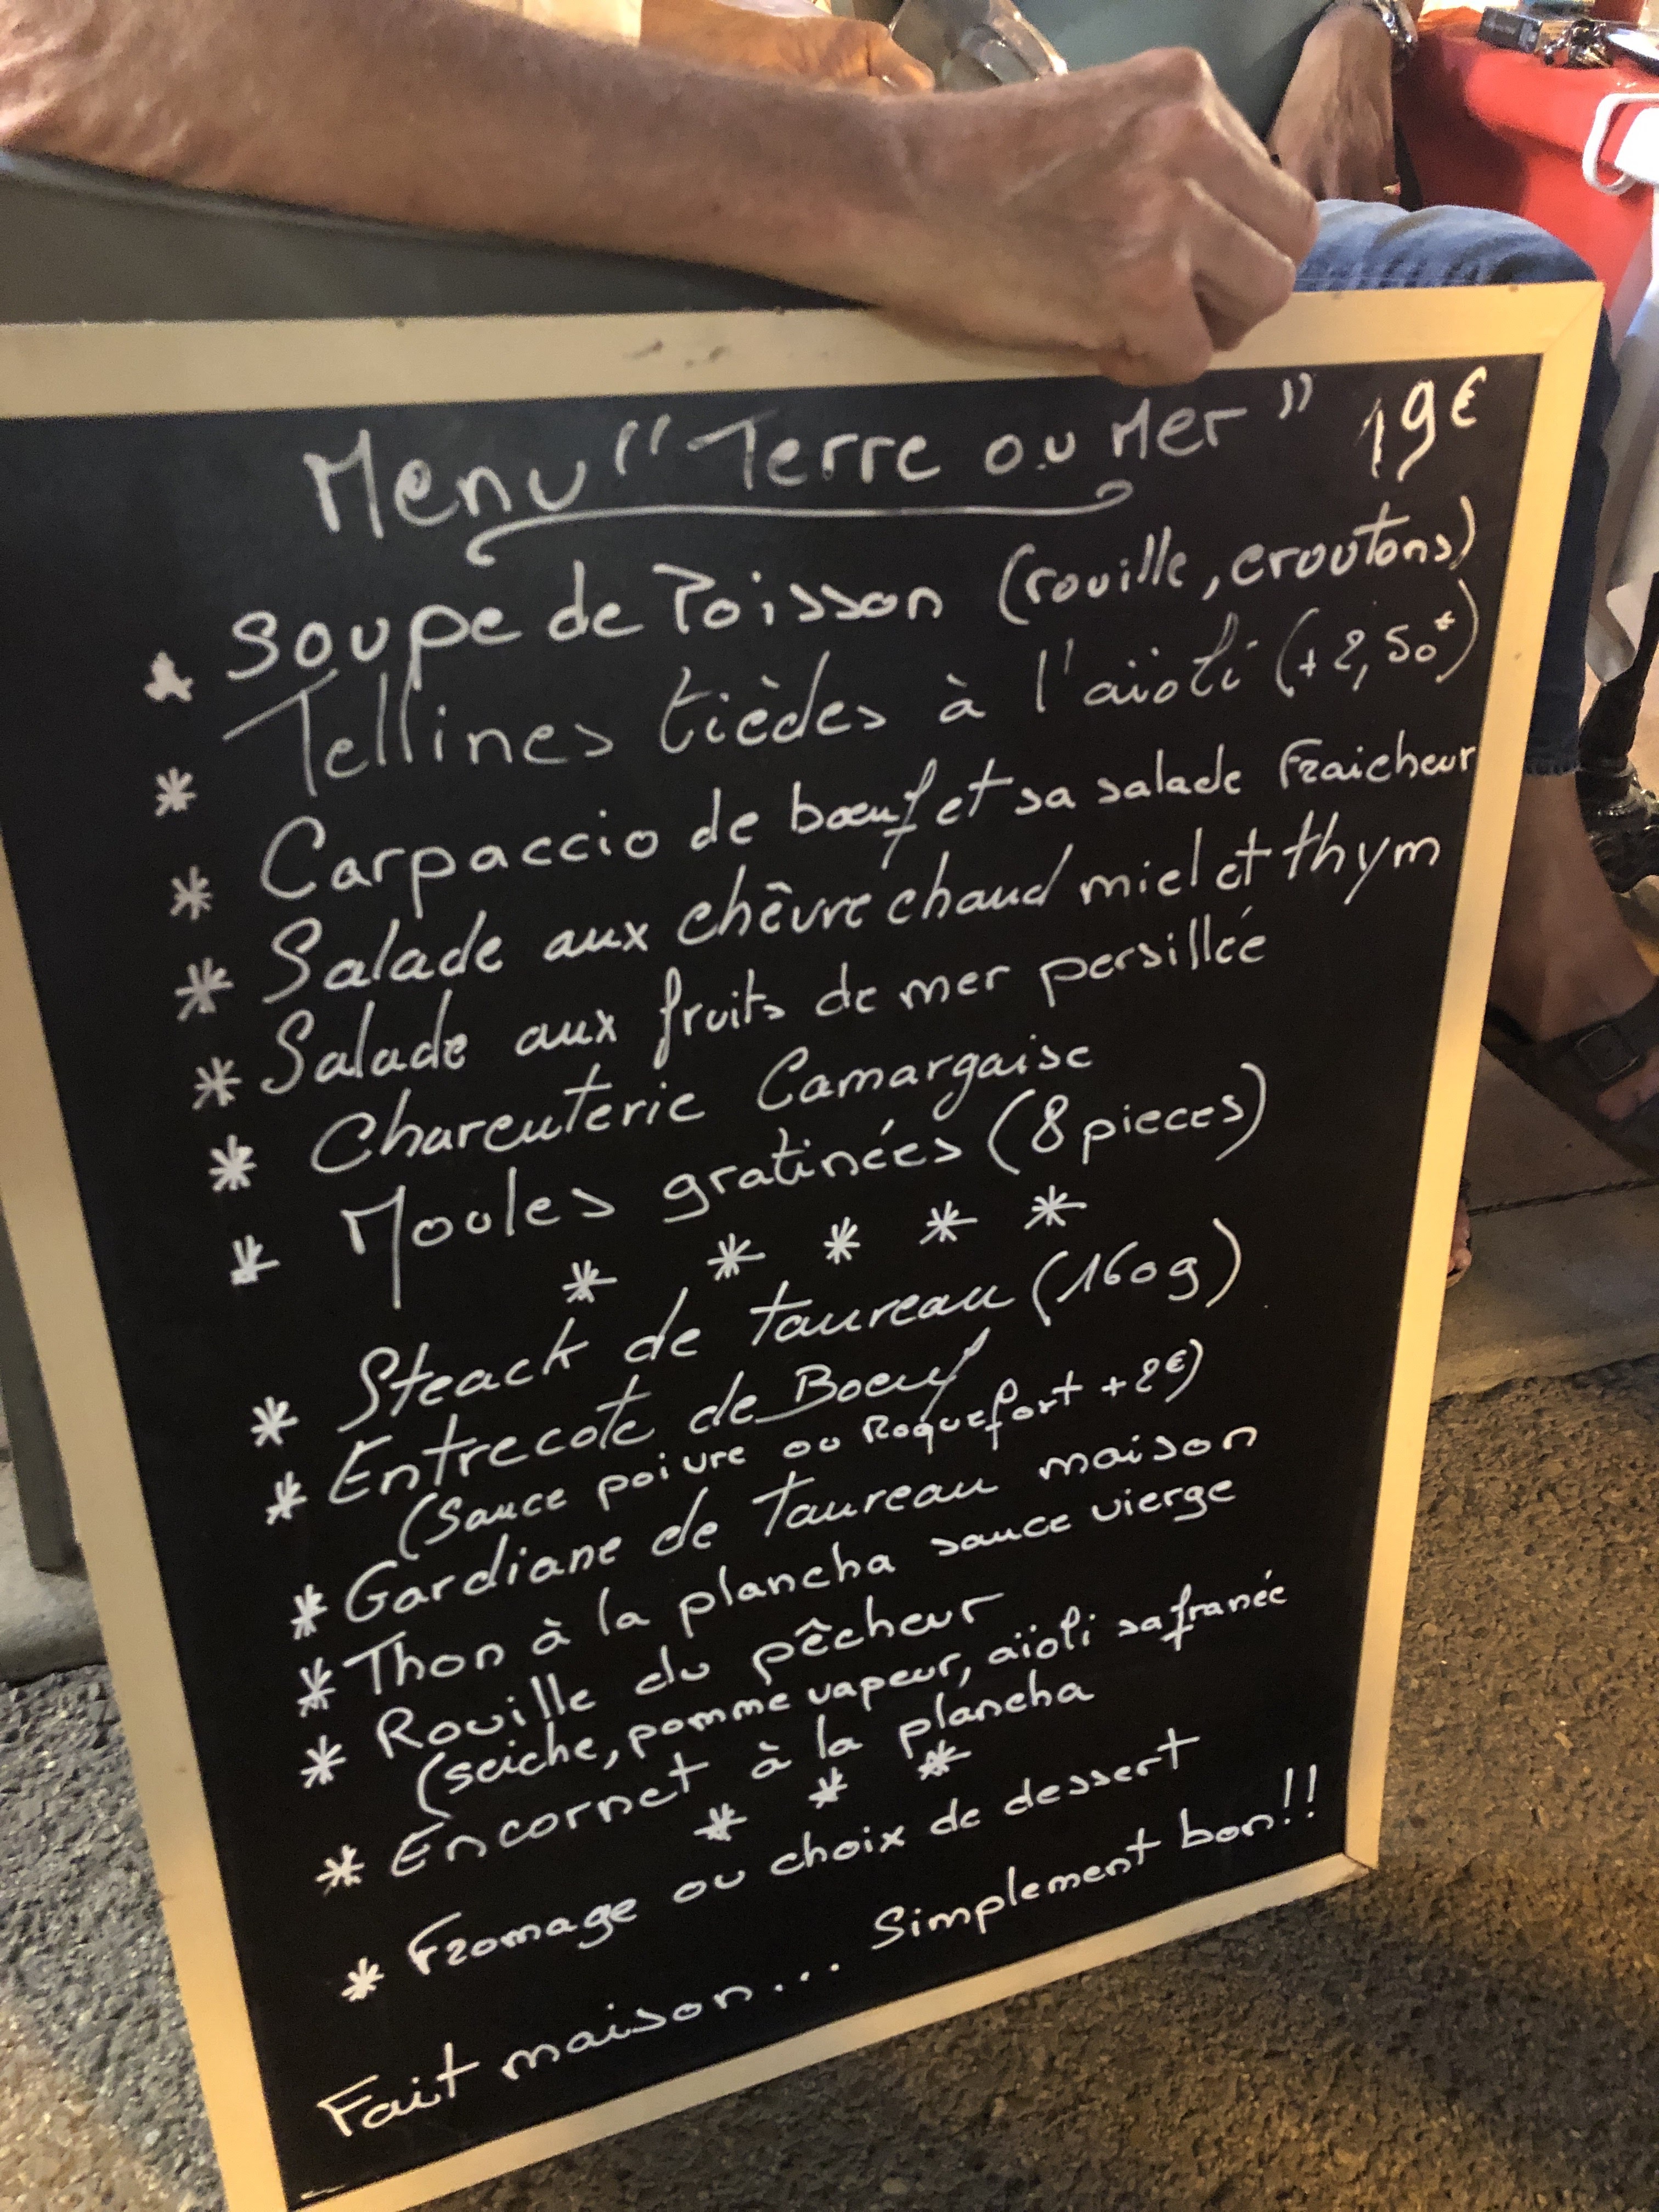 Menu "Terre ou Mer" 19€
* Soupe de Poisson (rouille, croutons)
* Tellines tièdes à l'aïoli (+2,50€)
* Carpaccio de bœuf et sa salade fraicheur
* Salade aux chèvre chaud miel et thym
* Salade aux fruits de mer persillée
* Charcuterie Camargaise
* Moules gratinées (8 pieces)
* * * * *
* Steack de taureau (160g)
* Entrecote de Boeuf
(Sauce poivre ou Roquefort +2€)
* Gardiane de taureau maison
* Thon à la plancha sauce vierge
* Rouille du pêcheur
(seiche, pomme vapeur, aïoli safranée
* Encornet à la plancha
* * *
* Fromage ou choix de dessert
Fait maison... Simplement bon!!